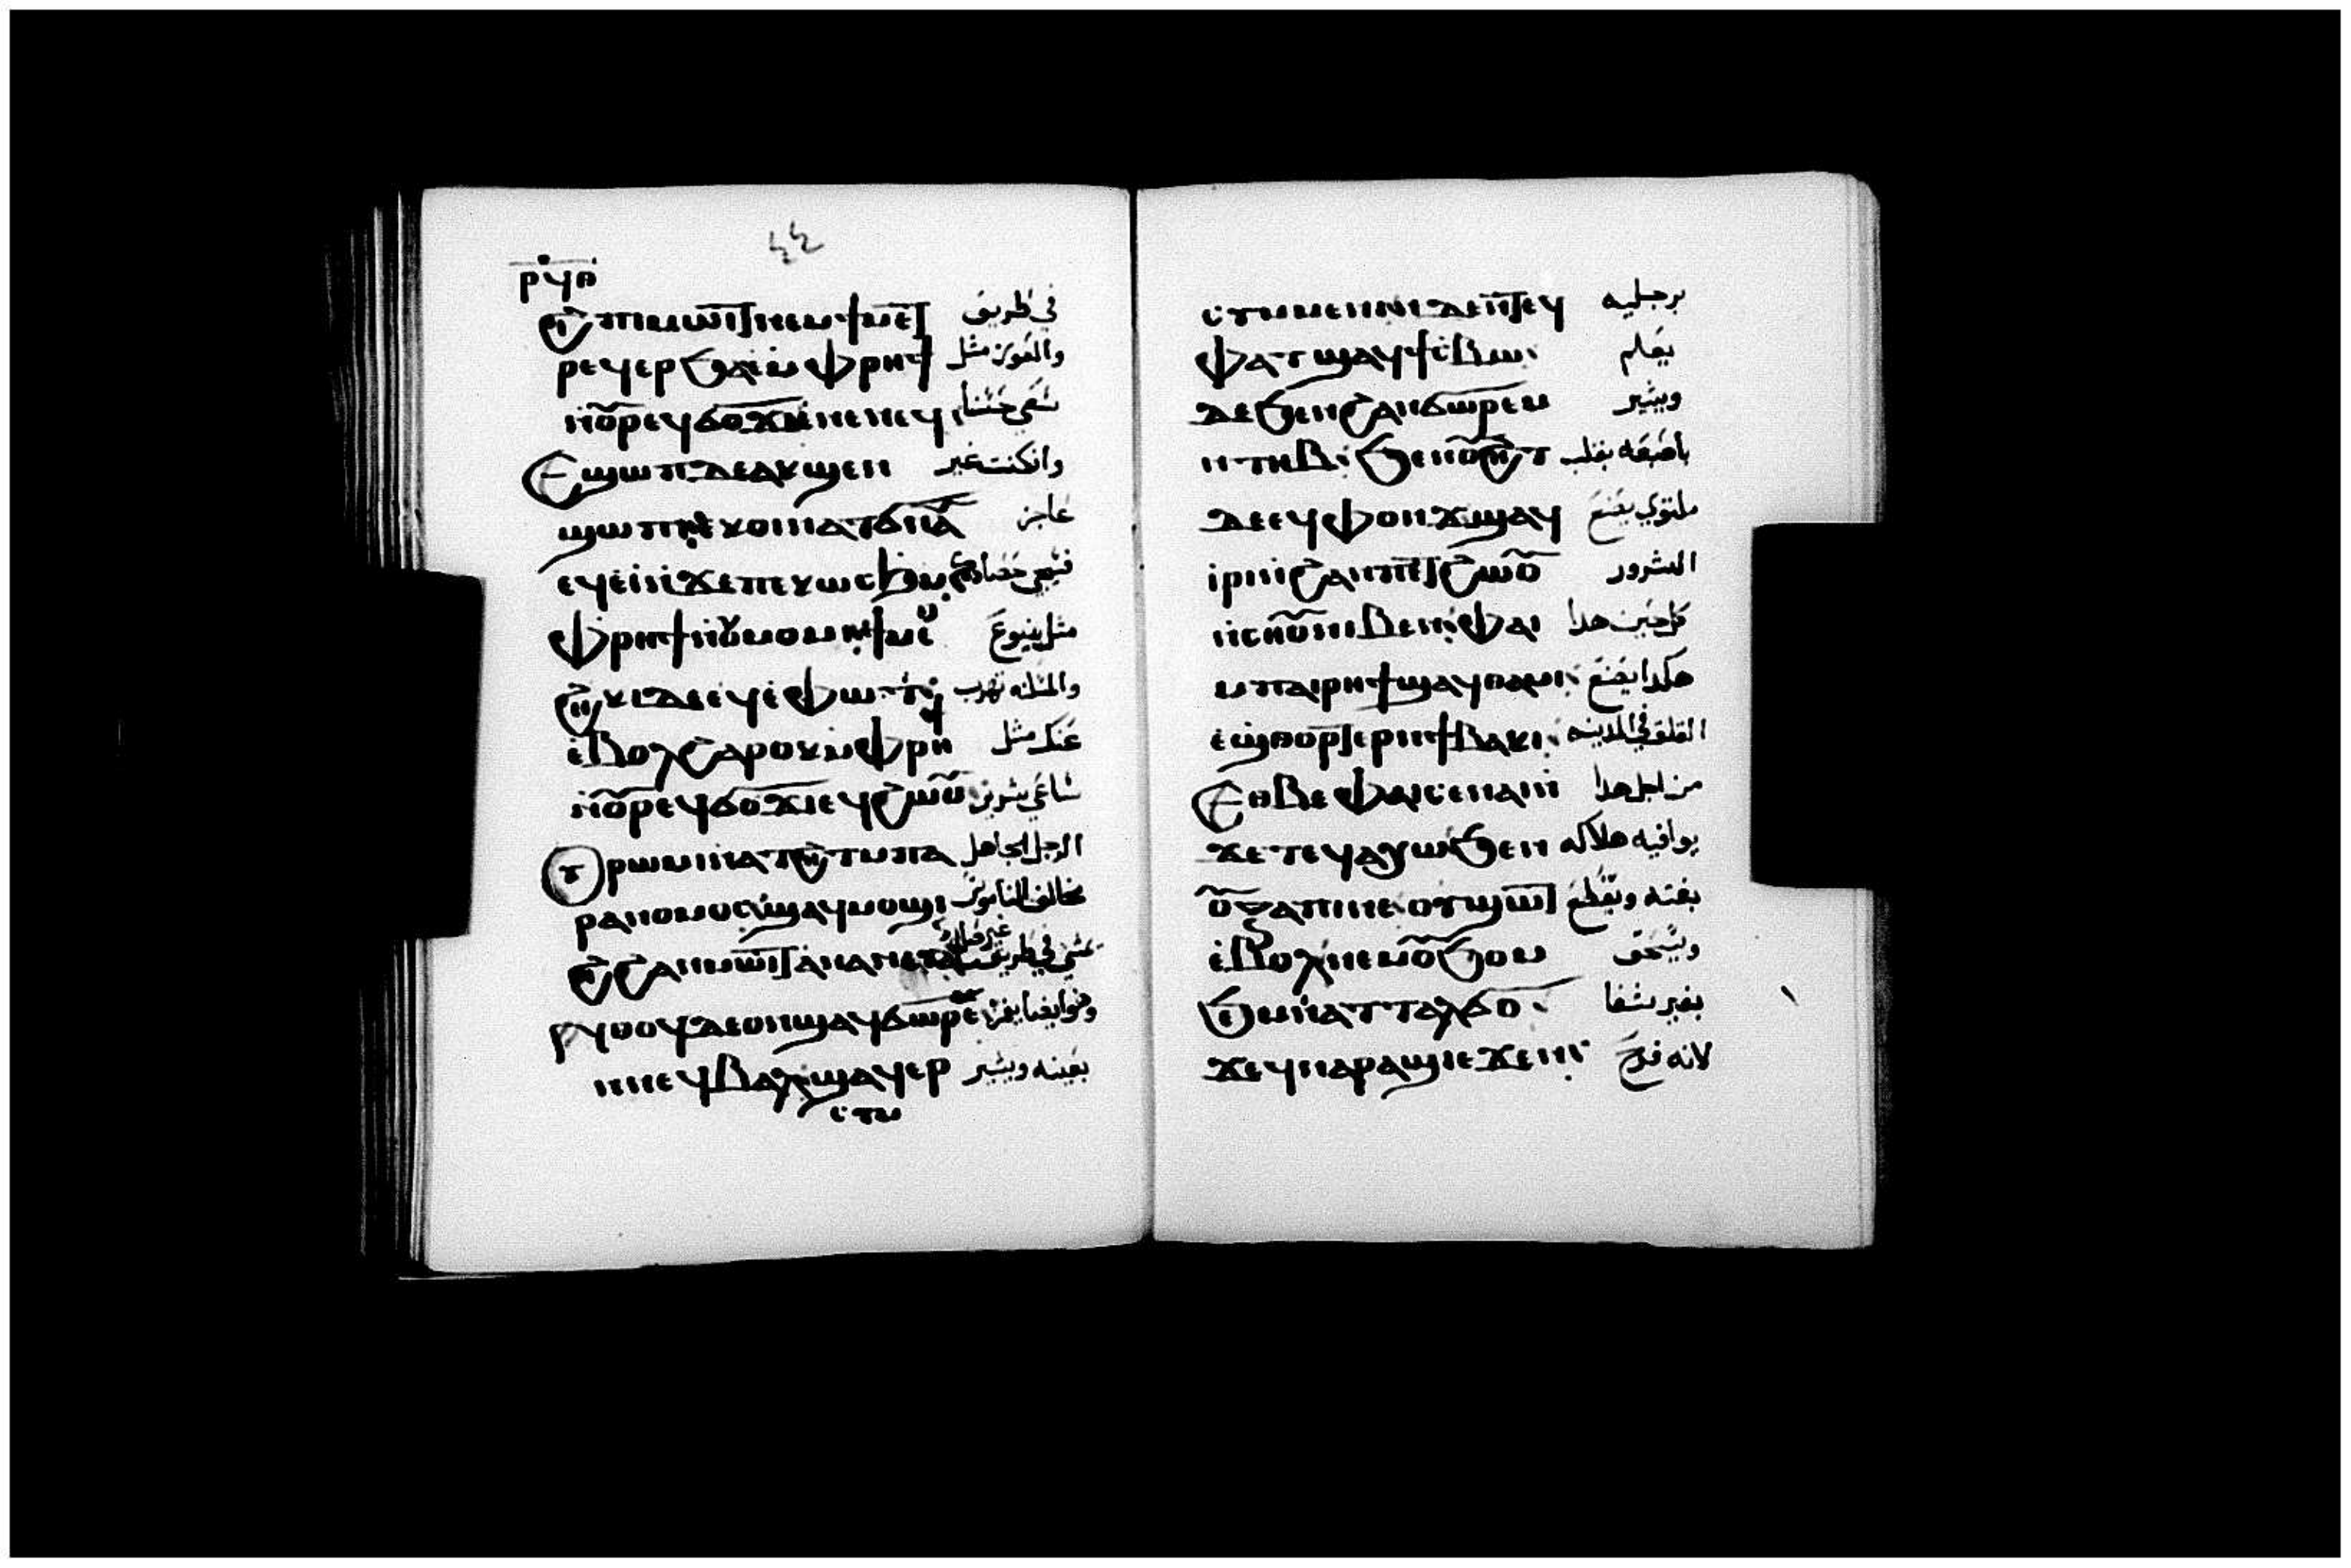 ⲣϥⲑ ٤٤
ϩⲓ ⲡⲓⲙⲱⲓⲧ ⲛⲉⲙ ϯⲙⲉⲧ في طريق
ⲣⲉϥⲉⲣϧⲁⲉ ⲙ̀ⲫⲣⲏϯ والعوز مثل
ⲛ̀ⲟⲩⲣⲉϥϭⲟϫⲓ ⲛⲉⲛⲉϥ
Ⲉϣⲱⲡ ⲇⲉ ⲁⲕϣⲉⲛ وانكنت غير
ϣⲱⲡⲓ ⲉⲕⲟⲓ ⲛ̀ⲁⲧϭⲛⲁⲩ عاجز
ⲉϥⲉ̀ⲓ̀ ⲛ̀ϫⲉ ⲡⲉⲕⲱⲥϧ ⲙ̀ فيجي حصادك
ⲫⲣⲏϯ ⲛ̀ⲟⲩⲙⲟⲩⲙⲓ ϯⲙⲉⲧ مثل ينبوع
ϩⲏⲕⲓ ⲇⲉ ⲉϥⲉ̀ⲫⲱⲧ والمسكنه تهرب
ⲉ̀ⲃⲟⲗ ϩⲁⲣⲟⲕ ⲙ̀ⲫⲣⲏϯ عنك مثل
ⲛ̀ⲟⲩⲣⲉϥϭⲟϫⲓ ⲉϥϩⲱⲟⲩ ساعي شرير
Ⲟⲩⲣⲱⲙⲓ ⲛ̀ⲁⲧϩⲏⲧ ⲙ̀ⲡⲁ الرجل الجاهل
ⲣⲁⲛⲟⲙⲟⲥ ϣⲁϥⲙⲟϣⲓ مخالف الناموس
ϩⲓ ϩⲁⲛⲙⲱⲓⲧ ⲁⲛⲁⲛⲉⲩ يمشي في طريق غير صالحه
ϥⲑⲟϥ ⲇⲉ ⲟⲛ ϣⲁϥϭⲱⲣⲉⲙ وهو ايضا يغمز
ⲛ̀ⲛⲉϥⲃⲁⲗ ϣⲁϥⲉⲣ بعينه ويشير
ⲥⲩⲙ
ⲥⲩⲙⲉⲛⲓⲛ ⲇⲉ ⲛ̀ⲧⲉϥ برجليه
ⲫⲁⲧ ϣⲁϥϯⲥ̀ⲃⲱ يعلم
ⲇⲉ ϧⲉⲛ ϩⲁⲛϭⲱⲣⲉⲙ ويشير
ⲛ̀ⲧⲏⲃ ϧⲉⲛ ⲟⲩϩⲏⲧ باصبعه بقلب
ⲇⲉ ⲉϥⲫⲟⲛϫ ϣⲁϥ ملتوي يصنع
ⲓ̀ⲣⲓ ⲛ̀ϩⲁⲛⲡⲉⲧϩⲱⲟⲩ الشرور
ⲛ̀ⲥⲏⲟⲩ ⲛⲓⲃⲉⲛ ⲫⲁⲓ كل حين هدا
ⲙ̀ⲡⲁⲓⲣⲏϯ ϣⲁϥⲑⲁⲙⲓⲟ هكدا يصنع
ⲉ̀ϣⲑⲟⲣⲧⲉⲣ ⲛ̀ϯⲃⲁⲕⲓ القلق في المدينه
Ⲉⲑⲃⲉ ⲫⲁⲓ ⲥⲉⲛⲁⲓ̀ من اجل هدا
ϫⲉ ⲡⲉϥⲧⲁⲕⲟ ϧⲉⲛ يوافيه هلاكه
ⲟⲩϩⲁⲡⲓⲛⲁ ⲟⲩϣⲱⲧ بغته ويقطع
ⲉ̀ⲃⲟⲗ ⲛⲉⲙ ⲟⲩϧⲟⲙϧⲉⲙ ويسحق
ⲛ̀ⲁⲧⲧⲁⲗϭⲟ بغير شفا
ϫⲉ ϥⲛⲁⲣⲁϣⲓ ⲉϫⲉⲛ لانه فرح